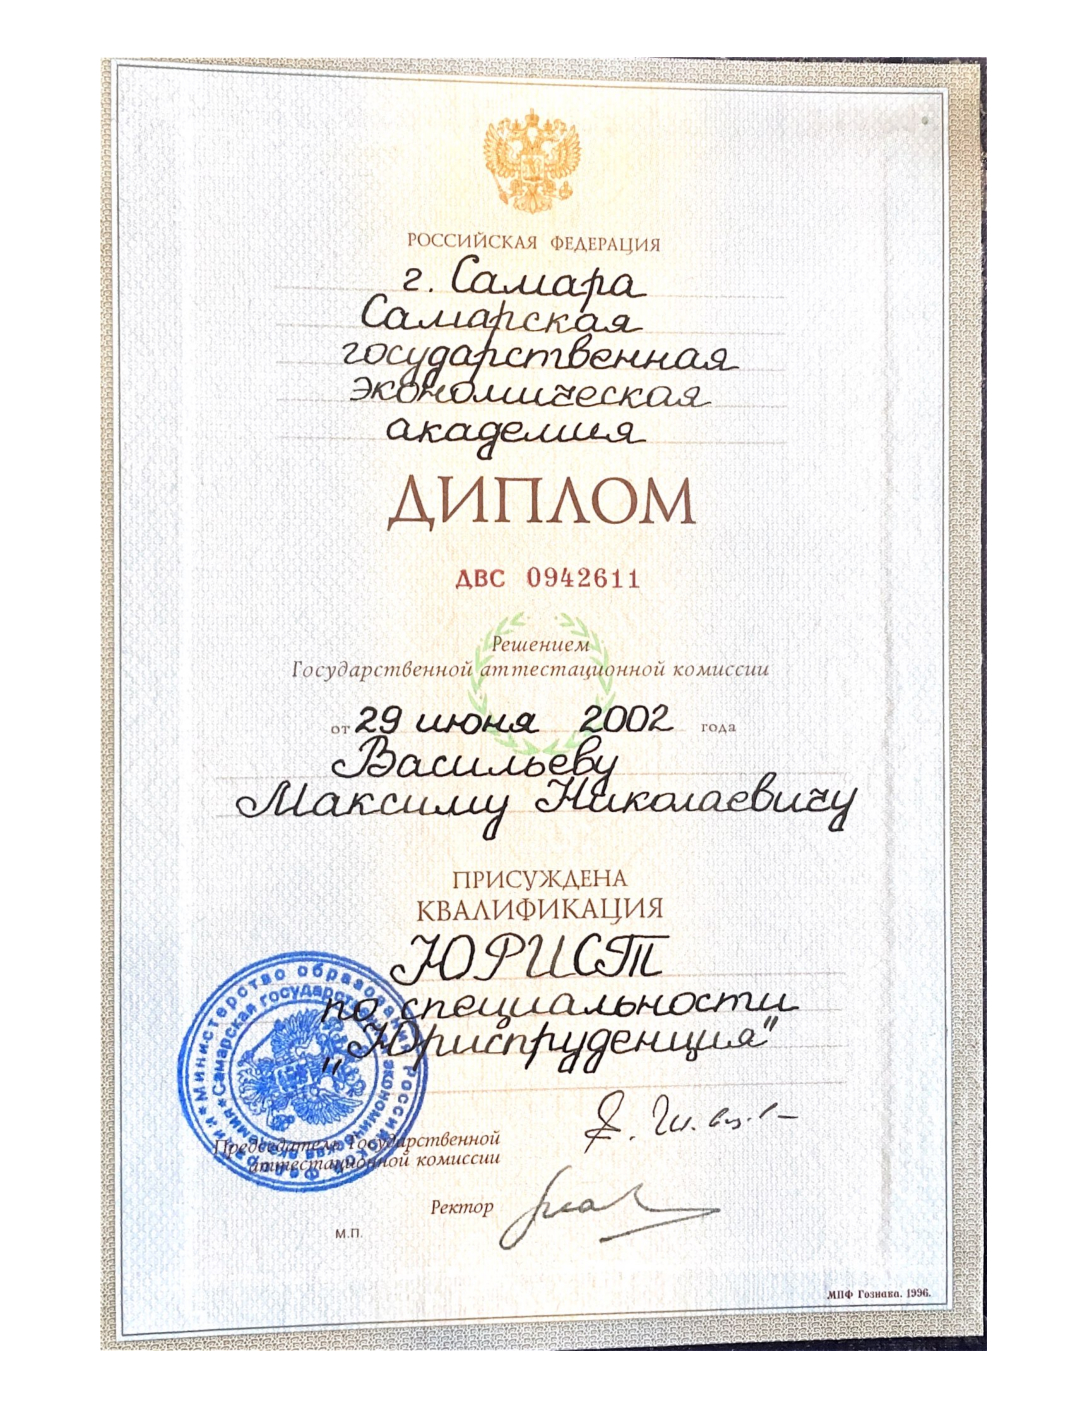 РОССИЙСКАЯ ФЕДЕРАЦИЯ
г. Самара
Самарская
государственная
экономическая
академия
ДИПЛОМ
ДВС 0942611
Решением
Государственной аттестационной комиссии
от 29 июня 2002 года
Васильеву
Максиму Николаевичу
ПРИСУЖДЕНА
КВАЛИФИКАЦИЯ
ЮРИСТ
по специальности
"Юриспруденция"
Министерство образования Российской Федерации
Самарская государственная экономическая академия
Председатель Государственной
аттестационной комиссии
Ректор
М.П.
МПФ Гознака. 1996.